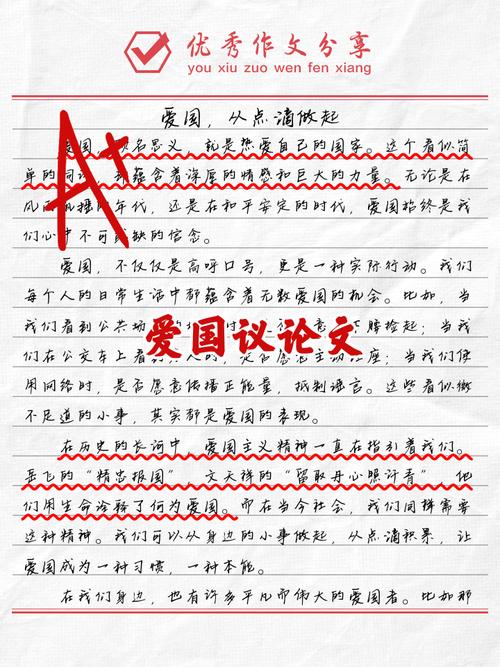 优秀作文分享
you xiu zuo wen fen xiang
爱国，从点滴做起
A+
爱国，名思义，就是热爱自己的国家。这个看似简
单的词，蕴含着深厚的情感和巨大的力量。无论是在
风播的年代，还是在和平安定的时代，爱国始终是我
们心中不可缺的信念。
爱国，不仅仅是高呼口号，更是一种实际行动。我们
每个人的日常生活中都蕴含着无数爱国的机会。比如，当
我们看到公共场下腰捡起；当我
们在公交车上看到人时，是否愿意主动座；当我们使
用网络时，是否愿意传播正能量，抵制谣言。这些看似微
不足道的小事，其实都是爱国的表现。
爱国议论文
在历史的长河中，爱国主义精神一直在指引着我们。
岳飞的“精忠报国”，文天祥的“留取丹心照汗青”，他
们用生命诠释了何为爱国。而在当今社会，我们同样需要
这种精神。我们可以从身边的小事做起，从点滴积累，让
爱国成为一种习惯，一种本能。
在我们身边，也有许多平凡而伟大的爱国者。比如那